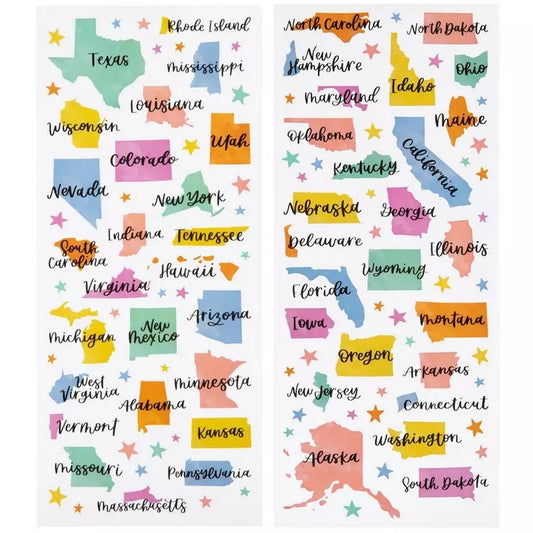 Rhode Island
Texas
Mississippi
Louisiana
Wisconsin
Utah
Colorado
Nevada
New York
Indiana
Tennessee
South
Carolina
Hawaii
Virginia
Arizona
Michigan
New
Mexico
West
Virginia
Minnesota
Alabama
Vermont
Kansas
Missouri
Pennsylvania
Massachusetts
North Carolina
North Dakota
New
Hampshire
Idaho
Ohio
Maryland
Maine
Oklahoma
California
Kentucky
Nebraska
Georgia
Delaware
Illinois
Wyoming
Florida
Iowa
Montana
Oregon
Arkansas
New Jersey
Connecticut
Washington
Alaska
South Dakota